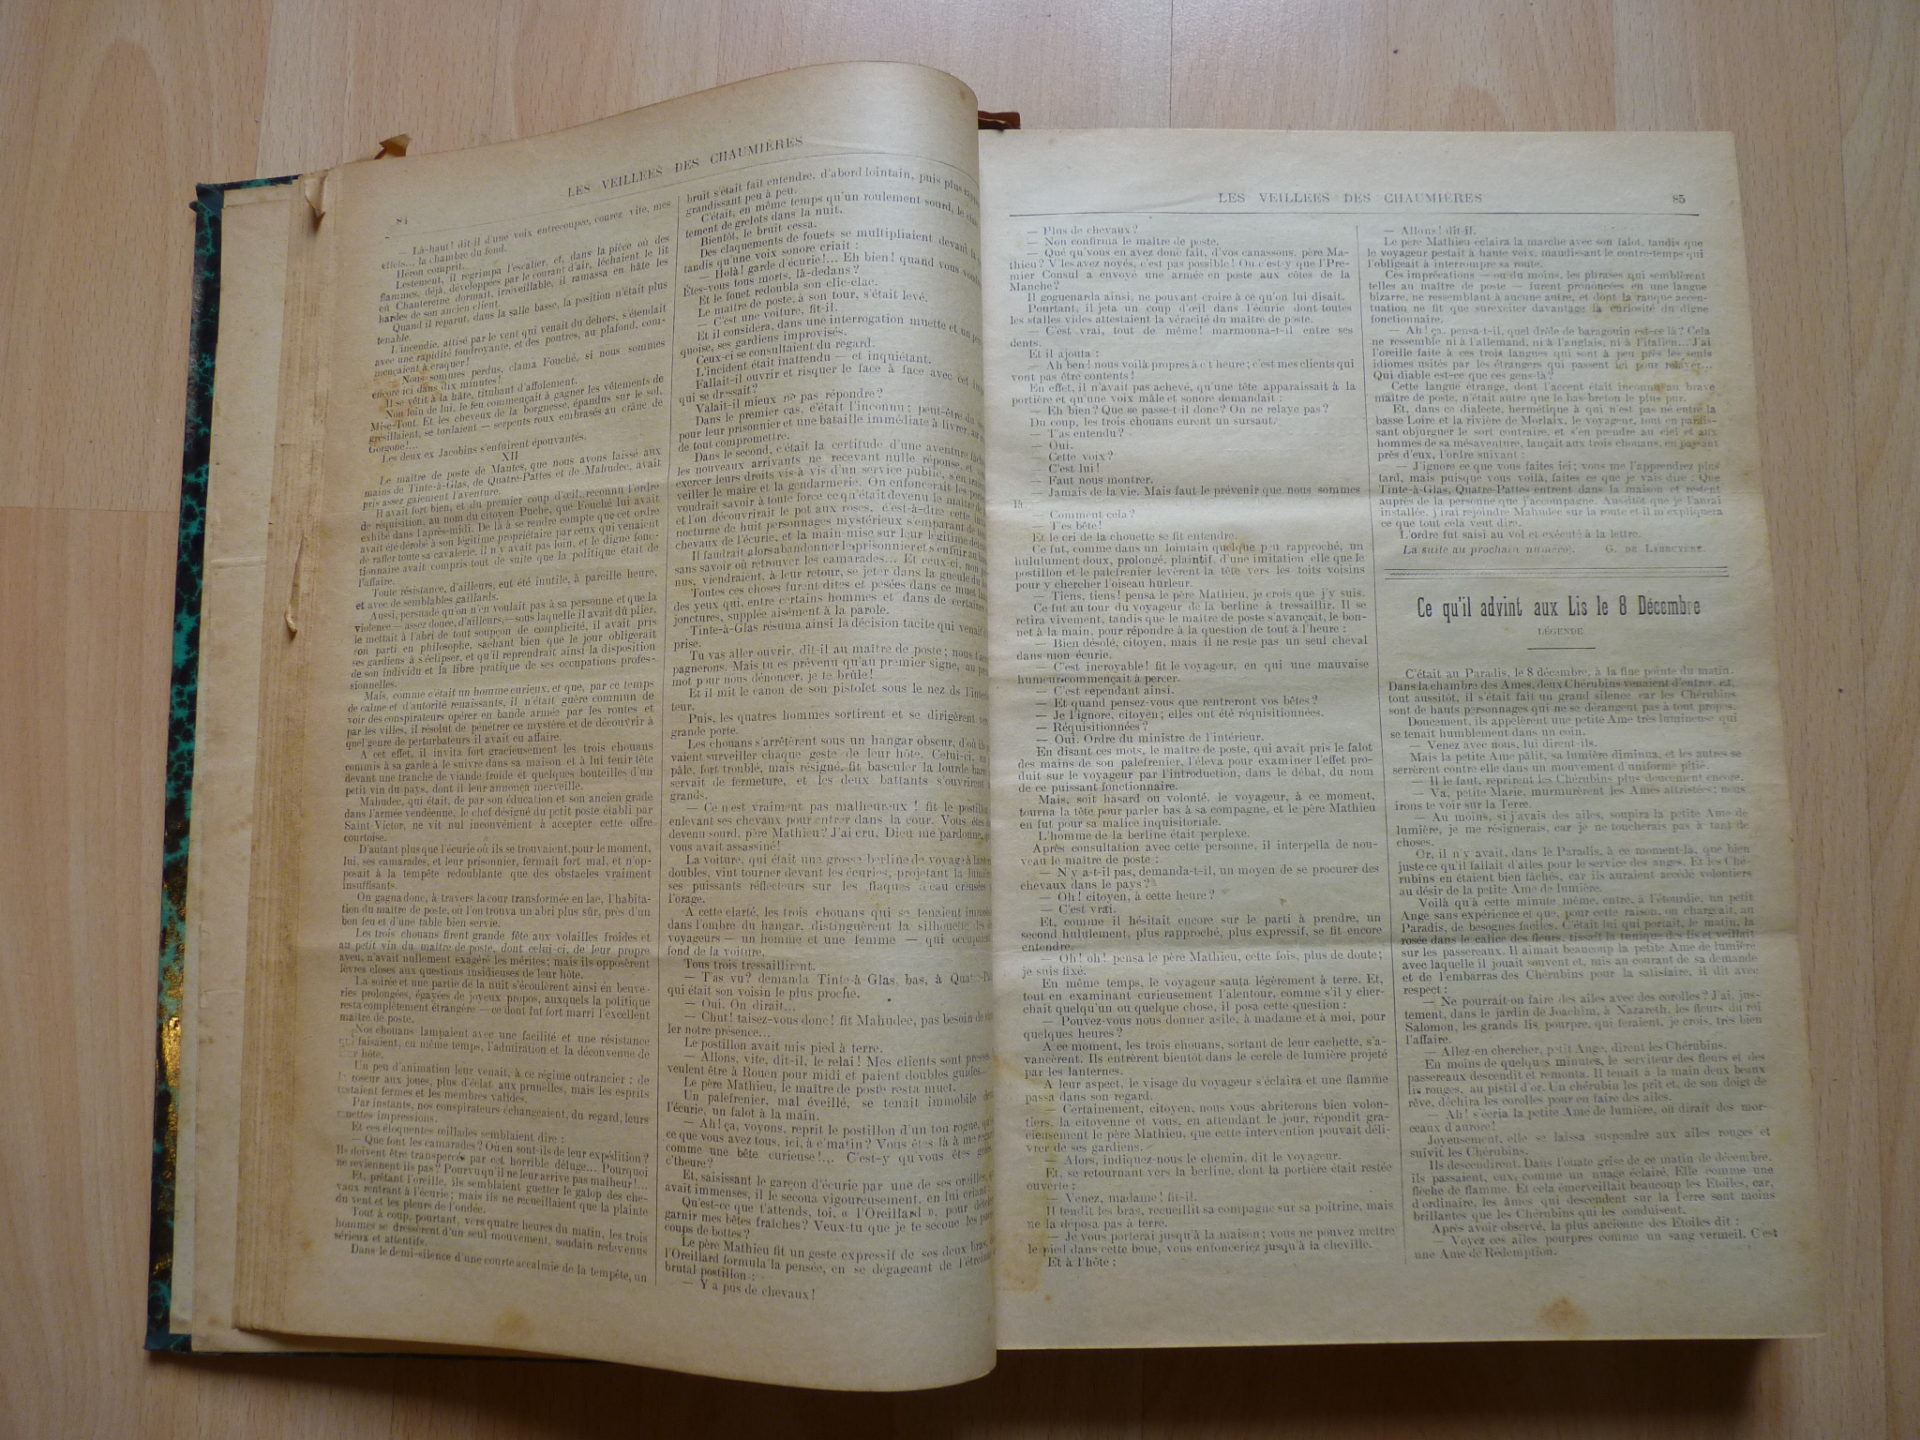 LES VEILLEES DES CHAUMIÈRES
84
— Là-haut! dit-il d'une voix entrecoupée, courez vite, mes
effets... la chambre du fond.
Héron comprit.
Lestement, il regrimpa l'escalier, et, dans la pièce où des
flammes, déjà, développées par le courant d'air, léchaient le lit
où Chantereine dormait, irréveillable, il ramassa en hâte les
hardes de son ancien client.
Quand il reparut, dans la salle basse, la position n'était plus
tenable.
L'incendie, attisé par le vent qui venait du dehors, s'étendait
avec une rapidité foudroyante, et des poutres, au plafond, com-
mençaient à craquer!
— Nous sommes perdus, clama Fouché, si nous sommes
encore ici dans dix minutes!
Il se vêtit à la hâte, titubant d'affolement.
Non loin de lui, le feu commençait à gagner les vêtements de
Mise-Tout. Et les cheveux de la borgnesse, épandus sur le sol,
grésillaient, se tordaient — serpents roux embrasés au crâne de
Gorgone!...
Les deux ex Jacobins s'enfuirent épouvantés.
XII
Le maître de poste de Mantes, que nous avons laissé aux
mains de Tinte-à-Glas, de Quatre-Pattes et de Mahudec, avait
pris assez gaiement l'aventure.
Il avait fort bien, et du premier coup d'œil, reconnu l'ordre
de réquisition, au nom du citoyen Puche, que Fouché lui avait
exhibé dans l'après-midi. De là à se rendre compte que cet ordre
avait été dérobé à son légitime propriétaire par ceux qui venaient
de rafler toute sa cavalerie, il n'y avait pas loin, et le digne fonc-
tionnaire avait compris tout de suite que la politique était de
l'affaire.
Toute résistance, d'ailleurs, eut été inutile, à pareille heure,
et avec de semblables gaillards.
Aussi, persuadé qu'on n'en voulait pas à sa personne et que la
violence — assez douce, d'ailleurs, — sous laquelle il avait dû plier,
le mettait à l'abri de tout soupçon de complicité, il avait pris
son parti en philosophe, sachant bien que le jour obligerait
ses gardiens à s'éclipser, et qu'il reprendrait ainsi la disposition
de son individu et la libre pratique de ses occupations profes-
sionnelles.
Mais, comme c'était un homme curieux, et que, par ce temps
de calme et d'autorité renaissants, il n'était guère commun de
voir des conspirateurs opérer en bande armée par les routes et
par les villes, il résolut de pénétrer ce mystère et de découvrir à
quel genre de perturbateurs il avait eu affaire.
A cet effet, il invita fort gracieusement les trois chouans
commis à sa garde à le suivre dans sa maison et à lui tenir tête
devant une tranche de viande froide et quelques bouteilles d'un
petit vin du pays, dont il leur annonça merveille.
Mahudec, qui était, de par son éducation et son ancien grade
dans l'armée vendéenne, le chef désigné du petit poste établi par
Saint-Victor, ne vit nul inconvénient à accepter cette offre
courtoise.
D'autant plus que l'écurie où ils se trouvaient, pour le moment,
lui, ses camarades, et leur prisonnier, fermait fort mal, et n'op-
posait à la tempête redoublante que des obstacles vraiment
insuffisants.
On gagna donc, à travers la cour transformée en lac, l'habita-
tion du maître de poste, où l'on trouva un abri plus sûr, près d'un
bon feu et d'une table bien servie.
Les trois chouans firent grande fête aux volailles froides et
au petit vin du maître de poste, dont celui-ci, de leur propre
aveu, n'avait nullement exagéré les mérites; mais ils opposèrent
lèvres closes aux questions insidieuses de leur hôte.
La soirée et une partie de la nuit s'écoulèrent ainsi en beuve-
ries prolongées, égayées de joyeux propos, auxquels la politique
resta complètement étrangère — ce dont fut fort marri l'excellent
maître de poste.
Nos chouans lampaient avec une facilité et une résistance
qui faisaient, en même temps, l'admiration et la déconvenue de
leur hôte.
Un peu d'animation leur venait, à ce régime outrancier; de
la roseur aux joues, plus d'éclat aux prunelles, mais les esprits
restaient fermes et les membres valides.
Par instants, nos conspirateurs échangeaient, du regard, leurs
muettes impressions.
Et ces éloquentes œillades semblaient dire :
— Que font les camarades? Où en sont-ils de leur expédition?
Ils doivent être transpercés par cet horrible déluge... Pourquoi
ne reviennent ils pas? Pourvu qu'il ne leur arrive pas malheur!...
Et, prêtant l'oreille, ils semblaient guetter le galop des che-
vaux rentrant à l'écurie; mais ils ne recueillaient que la plainte
du vent et les pleurs de l'ondée.
Tout à coup, pourtant, vers quatre heures du matin, les trois
hommes se dressèrent d'un seul mouvement, soudain redevenus
sérieux et attentifs.
Dans le demi-silence d'une courte accalmie de la tempête, un
bruit s'était fait entendre, d'abord lointain, puis plus
grandissant peu à peu.
C'était, en même temps qu'un roulement sourd, le
tement de grelots dans la nuit.
Bientôt, le bruit cessa.
Des claquements de fouets se multipliaient devant
tandis qu'une voix sonore criait :
— Holà! garde d'écurie!... Eh bien! quand vous
Êtes-vous tous morts, là-dedans?
Et le fouet redoubla son clic-clac.
Le maître de poste, à son tour, s'était levé.
— C'est une voiture, fit-il.
Et il considéra, dans une interrogation muette et un peu
quoise, ses gardiens improvisés.
Ceux-ci se consultaient du regard.
L'incident était inattendu — et inquiétant.
Fallait-il ouvrir et risquer le face à face avec cet
qui se dressait?
Valait-il mieux ne pas répondre?
Dans le premier cas, c'était l'inconnu; peut-être du
pour leur prisonnier et une bataille immédiate à livrer, au
de tout compromettre.
Dans le second, c'était la certitude d'une aventure
les nouveaux arrivants ne recevant nulle réponse, et
exercer leurs droits vis-à vis d'un service public, s'en iraient
veiller le maire et la gendarmerie. On enfoncerait les portes
voudrait savoir à toute force ce qu'était devenu le maître de
et l'on découvrirait le pot aux roses, c'est-à-dire cette
nocturne de huit personnages mystérieux s'emparant de
chevaux de l'écurie, et la main mise sur leur légitime
Il faudrait alors abandonner le prisonnier et s'enfuir au
sans savoir où retrouver les camarades... Et ceux-ci, non
nus, viendraient, à leur retour, se jeter dans la gueule du
Toutes ces choses furent dites et pesées dans ce muet
des yeux qui, entre certains hommes et dans de certaines
jonctures, supplée aisément à la parole.
Tinte-à-Glas résuma ainsi la décision tacite qui venait
prise.
Tu vas aller ouvrir, dit-il au maître de poste; nous
pagnerons. Mais tu es prévenu qu'au premier signe, au
mot pour nous dénoncer, je te brûle!
Et il mit le canon de son pistolet sous le nez de l'inter
teur.
Puis, les quatre hommes sortirent et se dirigèrent
grande porte.
Les chouans s'arrêtèrent sous un hangar obscur, d'où
vaient surveiller chaque geste de leur hôte. Celui-ci, un
pâle, fort troublé, mais résigné, fit basculer la lourde barre
servait de fermeture, et les deux battants s'ouvrirent
grands.
— Ce n'est vraiment pas malheureux ! fit le postillon
enlevant ses chevaux pour entrer dans la cour. Vous êtes
devenu sourd, père Mathieu? J'ai cru, Dieu me pardonne,
vous avait assassiné!
La voiture, qui était une grosse berline de voyage à
doubles, vint tourner devant les écuries, projetant la lumière
ses puissants réflecteurs sur les flaques d'eau creusées
l'orage.
A cette clarté, les trois chouans qui se tenaient
dans l'ombre du hangar, distinguèrent la silhouette des
voyageurs — un homme et une femme — qui occupaient
fond de la voiture.
Tous trois tressaillirent.
— T'as vu? demanda Tinte-à Glas, bas, à Quatre-Pattes
qui était son voisin le plus proche.
— Oui. On dirait...
— Chut! taisez-vous donc! fit Mahudec, pas besoin de
ler notre présence...
Le postillon avait mis pied à terre.
— Allons, vite, dit-il, le relai! Mes clients sont pressés
veulent être à Rouen pour midi et paient doubles guides...
Le père Mathieu, le maître de poste resta muet.
Un palefrenier, mal éveillé, se tenait immobile
l'écurie, un falot à la main.
— Ah! ça, voyons, reprit le postillon d'un ton rogue,
ce que vous avez tous, ici, à c'matin? Vous êtes là à me
comme une bête curieuse!... C'est-y qu'vous êtes
c'theure?
Et, saisissant le garçon d'écurie par une de ses oreilles,
avait immenses, il le secoua vigoureusement, en lui criant :
Qu'est-ce que t'attends, toi, « l'Oreillard », pour
garnir mes bêtes fraîches? Veux-tu que je te secoue les puces
coups de bottes?
Le père Mathieu fit un geste expressif de ses deux bras,
l'Oreillard formula la pensée, en se dégageant de l'étreinte
brutal postillon :
— Y a pus de chevaux!
LES VEILLEES DES CHAUMIÈRES
85
— Plus de chevaux?
— Non confirma le maître de poste.
— Qué qu'vous en avez donc fait, d'vos canassons, père Ma-
thieu? V'les avez noyés, c'est pas possible! Ou c'est-y que l'Pre-
mier Consul a envoyé une armée en poste aux côtes de la
Manche?
Il goguenarda ainsi, ne pouvant croire à ce qu'on lui disait.
Pourtant, il jeta un coup d'œil dans l'écurie dont toutes
les stalles vides attestaient la véracité du maître de poste.
— C'est vrai, tout de même! marmonna-t-il entre ses
dents.
Et il ajouta :
— Ah ben! nous voilà propres à c't heure; c'est mes clients qui
vont pas être contents!
En effet, il n'avait pas achevé, qu'une tête apparaissait à la
portière et qu'une voix mâle et sonore demandait :
— Eh bien? Que se passe-t-il donc? On ne relaye pas?
Du coup, les trois chouans eurent un sursaut.
— T'as entendu?
— Oui.
— Cette voix?
— C'est lui!
— Faut nous montrer.
— Jamais de la vie. Mais faut le prévenir que nous sommes
là.
— Comment cela?
— T'es bête!
Et le cri de la chouette se fit entendre.
Ce fut, comme dans un lointain quelque peu rapproché, un
hululument doux, prolongé, plaintif, d'une imitation elle que le
postillon et le palefrenier levèrent la tête vers les toits voisins
pour y chercher l'oiseau hurleur.
— Tiens, tiens! pensa le père Mathieu, je crois que j'y suis.
Ce fut au tour du voyageur de la berline à tressaillir. Il se
retira vivement, tandis que le maître de poste s'avançait, le bon-
net à la main, pour répondre à la question de tout à l'heure :
— Bien désolé, citoyen, mais il ne reste pas un seul cheval
dans mon écurie.
— C'est incroyable! fit le voyageur, en qui une mauvaise
humeur commençait à percer.
— C'est cependant ainsi.
— Et quand pensez-vous que rentreront vos bêtes?
— Je l'ignore, citoyen; elles ont été réquisitionnées.
— Réquisitionnées?
— Oui. Ordre du ministre de l'intérieur.
En disant ces mots, le maître de poste, qui avait pris le falot
des mains de son palefrenier, l'éleva pour examiner l'effet pro-
duit sur le voyageur par l'introduction, dans le débat, du nom
de ce puissant fonctionnaire.
Mais, soit hasard ou volonté, le voyageur, à ce moment,
tourna la tête pour parler bas à sa compagne, et le père Mathieu
en fut pour sa malice inquisitoriale.
L'homme de la berline était perplexe.
Après consultation avec cette personne, il interpella de nou-
veau le maître de poste :
— N'y a-t-il pas, demanda-t-il, un moyen de se procurer des
chevaux dans le pays?
— Oh! citoyen, à cette heure?
— C'est vrai.
Et, comme il hésitait encore sur le parti à prendre, un
second hululement, plus rapproché, plus expressif, se fit encore
entendre.
— Oh! oh! pensa le père Mathieu, cette fois, plus de doute;
je suis fixé.
En même temps, le voyageur sauta légèrement à terre. Et,
tout en examinant curieusement l'alentour, comme s'il y cher-
chait quelqu'un ou quelque chose, il posa cette question :
— Pouvez-vous nous donner asile, à madame et à moi, pour
quelques heures?
A ce moment, les trois chouans, sortant de leur cachette, s'a-
vancèrent. Ils entrèrent bientôt dans le cercle de lumière projeté
par les lanternes.
A leur aspect, le visage du voyageur s'éclaira et une flamme
passa dans son regard.
— Certainement, citoyen, nous vous abriterons bien volon-
tiers, la citoyenne et vous, en attendant le jour, répondit gra-
cieusement le père Mathieu, que cette intervention pouvait déli-
vrer de ses gardiens.
— Alors, indiquez-nous le chemin, dit le voyageur.
Et, se retournant vers la berline, dont la portière était restée
ouverte :
— Venez, madame! fit-il.
Il tendit les bras, recueillit sa compagne sur sa poitrine, mais
ne la déposa pas à terre.
— Je vous porterai jusqu'à la maison; vous ne pouvez mettre
le pied dans cette boue, vous enfonceriez jusqu'à la cheville.
Et à l'hôte :
— Allons! dit-il.
Le père Mathieu éclaira la marche avec son falot, tandis que
le voyageur pestait à haute voix, maudissant le contre-temps qui
l'obligeait à interrompre sa route.
Ces imprécations — ou du moins, les phrases qui semblèrent
telles au maître de poste — furent prononcées en une langue
bizarre, ne ressemblant à aucune autre, et dont la rauque accen-
tuation ne fit que surexciter davantage la curiosité du digne
fonctionnaire.
— Ah! ça, pensa-t-il, quel drôle de baragouin est-ce là? Cela
ne ressemble ni à l'allemand, ni à l'anglais, ni à l'italien... J'ai
l'oreille faite à ces trois langues qui sont à peu près les seuls
idiomes usités par les étrangers qui passent ici pour relayer...
Qui diable est-ce que ces gens-là?
Cette langue étrange, dont l'accent était inconnu au brave
maître de poste, n'était autre que le bas-breton le plus pur.
Et, dans ce dialecte, hermétique à qui n'est pas né entre la
basse Loire et la rivière de Morlaix, le voyageur, tout en parais-
sant objurguer le sort contraire, et s'en prendre au ciel et aux
hommes de sa mésaventure, lançait aux trois chouans, en passant
près d'eux, l'ordre suivant :
— J'ignore ce que vous faites ici; vous me l'apprendrez plus
tard, mais puisque vous voilà, faites ce que je vais dire : Que
Tinte-à-Glas, Quatre-Pattes entrent dans la maison et restent
auprès de la personne que j'accompagne. Aussitôt que je l'aurai
installée, j'irai rejoindre Mahudec sur la route et il m'expliquera
ce que tout cela veut dire.
L'ordre fut saisi au vol et exécuté à la lettre.
La suite au prochain numéro. G. DE LABRUYÈRE.
Ce qu'il advint aux Lis le 8 Décembre
LÉGENDE
C'était au Paradis, le 8 décembre, à la fine pointe du matin.
Dans la chambre des Ames, deux Chérubins venaient d'entrer, et,
tout aussitôt, il s'était fait un grand silence car les Chérubins
sont de hauts personnages qui ne se dérangent pas à tout propos.
Doucement, ils appelèrent une petite Ame très lumineuse qui
se tenait humblement dans un coin.
— Venez avec nous, lui dirent-ils.
Mais la petite Ame pâlit, sa lumière diminua, et les autres se
serrèrent contre elle dans un mouvement d'uniforme pitié.
— Il le faut, reprirent les Chérubins plus doucement encore.
— Va, petite Marie, murmurèrent les Ames attristées; nous
irons te voir sur la Terre.
— Au moins, si j'avais des ailes, soupira la petite Ame de
lumière, je me résignerais, car je ne toucherais pas à tant de
choses.
Or, il n'y avait, dans le Paradis, à ce moment-là, que bien
juste ce qu'il fallait d'ailes pour le service des anges. Et les Ché-
rubins en étaient bien fâchés, car ils auraient accédé volontiers
au désir de la petite Ame de lumière.
Voilà qu'à cette minute même, entre, à l'étourdie, un petit
Ange sans expérience et que, pour cette raison, on chargeait, au
Paradis, de besognes faciles. C'était lui qui portait, le matin, la
rosée dans le calice des fleurs, tissait la tunique des lis et veillait
sur les passereaux. Il aimait beaucoup la petite Ame de lumière
avec laquelle il jouait souvent et, mis au courant de sa demande
et de l'embarras des Chérubins pour la satisfaire, il dit avec
respect :
— Ne pourrait-on faire des ailes avec des corolles? J'ai, jus-
tement, dans le jardin de Joachim, à Nazareth, les fleurs du roi
Salomon, les grands lis, pourpre, qui feraient, je crois, très bien
l'affaire.
— Allez-en chercher, petit Ange, dirent les Chérubins.
En moins de quelques minutes, le serviteur des fleurs et des
passereaux descendit et remonta. Il tenait à la main deux beaux
lis rouges, au pistil d'or. Un chérubin les prit et, de son doigt de
rêve, déchira les corolles pour en faire des ailes.
— Ah! s'écria la petite Ame de lumière, on dirait des mor-
ceaux d'aurore!
Joyeusement, elle se laissa suspendre aux ailes rouges et
suivit les Chérubins.
Ils descendirent. Dans l'ouate grise de ce matin de décembre,
ils passaient, eux, comme un nuage éclairé, Elle comme une
flèche de flamme. Et cela émerveillait beaucoup les Etoiles, car,
d'ordinaire, les âmes qui descendent sur la Terre sont moins
brillantes que les Chérubins qui les conduisent.
Après avoir observé, la plus ancienne des Etoiles dit :
— Voyez ces ailes pourpres comme un sang vermeil. C'est
une Ame de Rédemption.